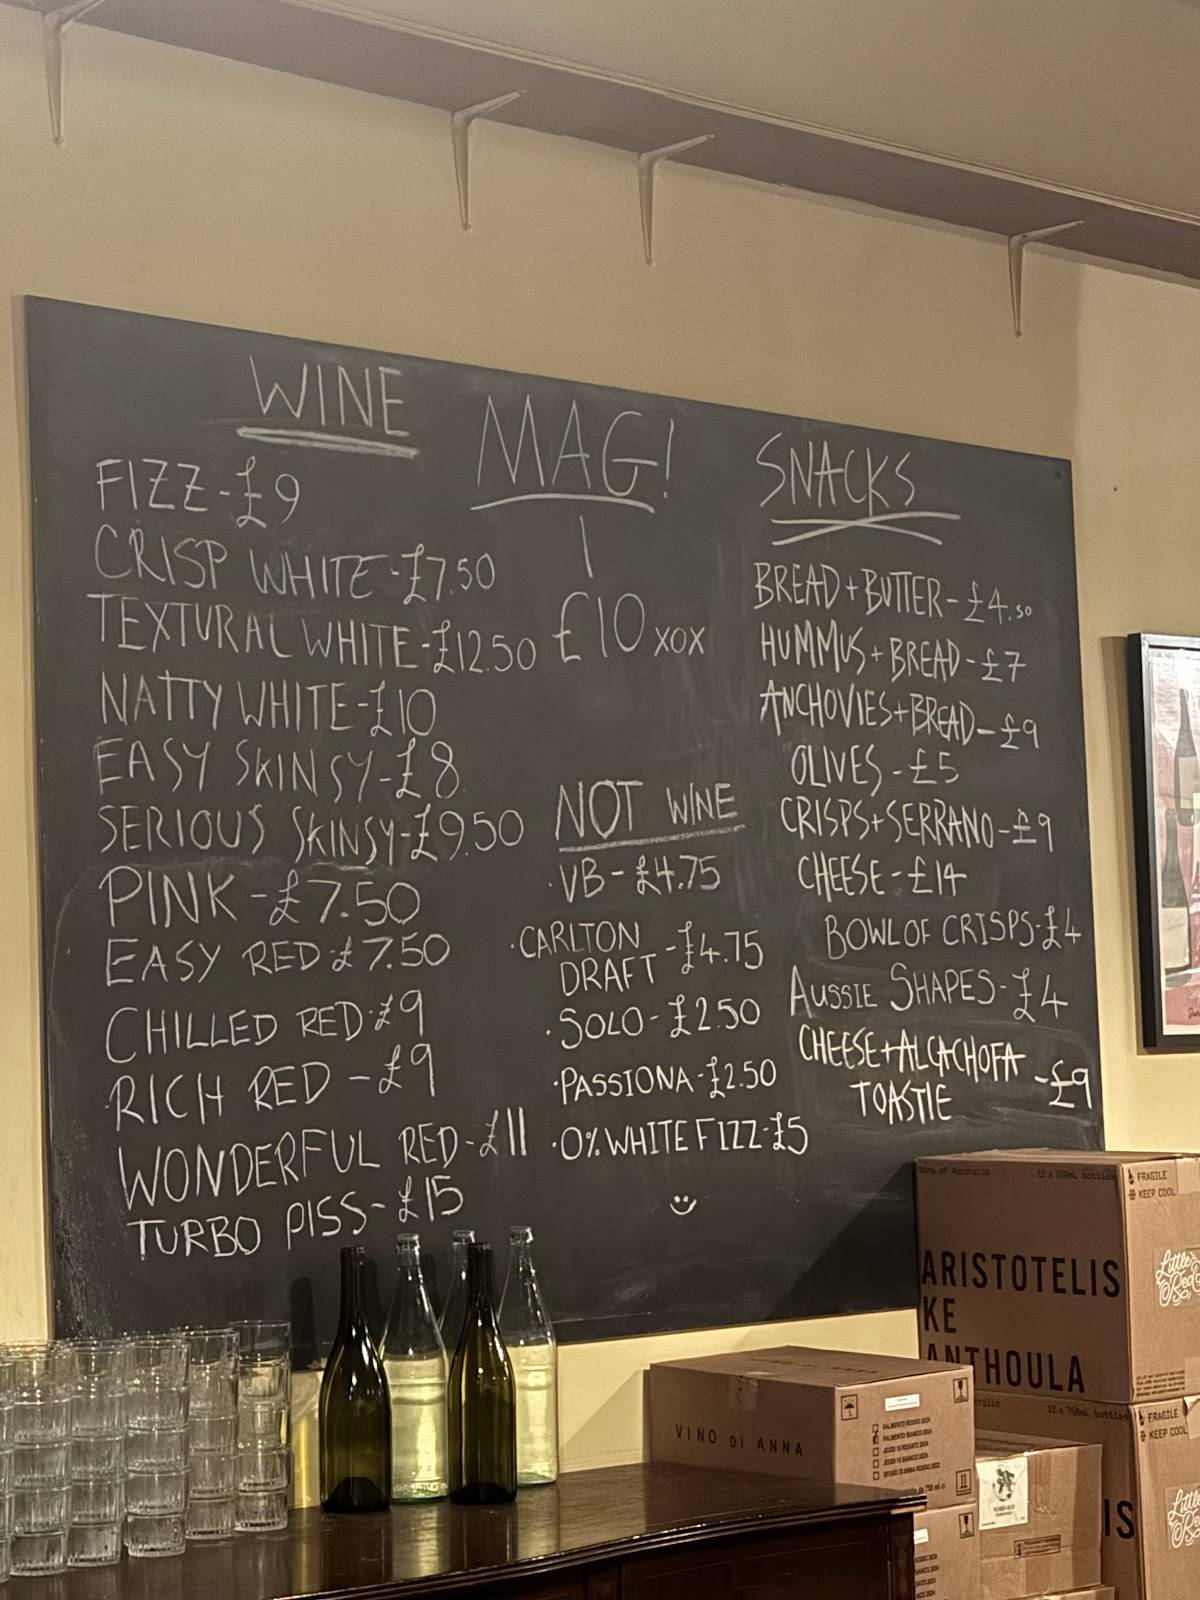 WINE
FIZZ-£9
CRISP WHITE-£7.50
TEXTURAL WHITE-£12.50
NATTY WHITE-£10
EASY SKINSY-£8
SERIOUS SKINSY-£9.50
PINK-£7.50
EASY RED-£7.50
CHILLED RED-£9
RICH RED-£9
WONDERFUL RED-£11
TURBO PISS-£15
MAG!
£10 xox
NOT WINE
·VB-£4.75
·CARLTON
DRAFT-£4.75
·SOLO-£2.50
·PASSIONA-£2.50
·0% WHITE FIZZ-£5
SNACKS
BREAD+BUTTER-£4.50
HUMMUS+BREAD-£7
ANCHOVIES+BREAD-£9
OLIVES-£5
CRISPS+SERRANO-£9
CHEESE-£14
BOWL OF CRISPS-£4
AUSSIE SHAPES-£4
CHEESE+ALCACHOFA
TOASTIE-£9
Wine of Australia
12 x 750mL bottles
FRAGILE
KEEP COOL
ARISTOTELIS
KE
ANTHOULA
Little
VINO DI ANNA
12 x 750mL bottles
FRAGILE
KEEP COOL
IS
Little